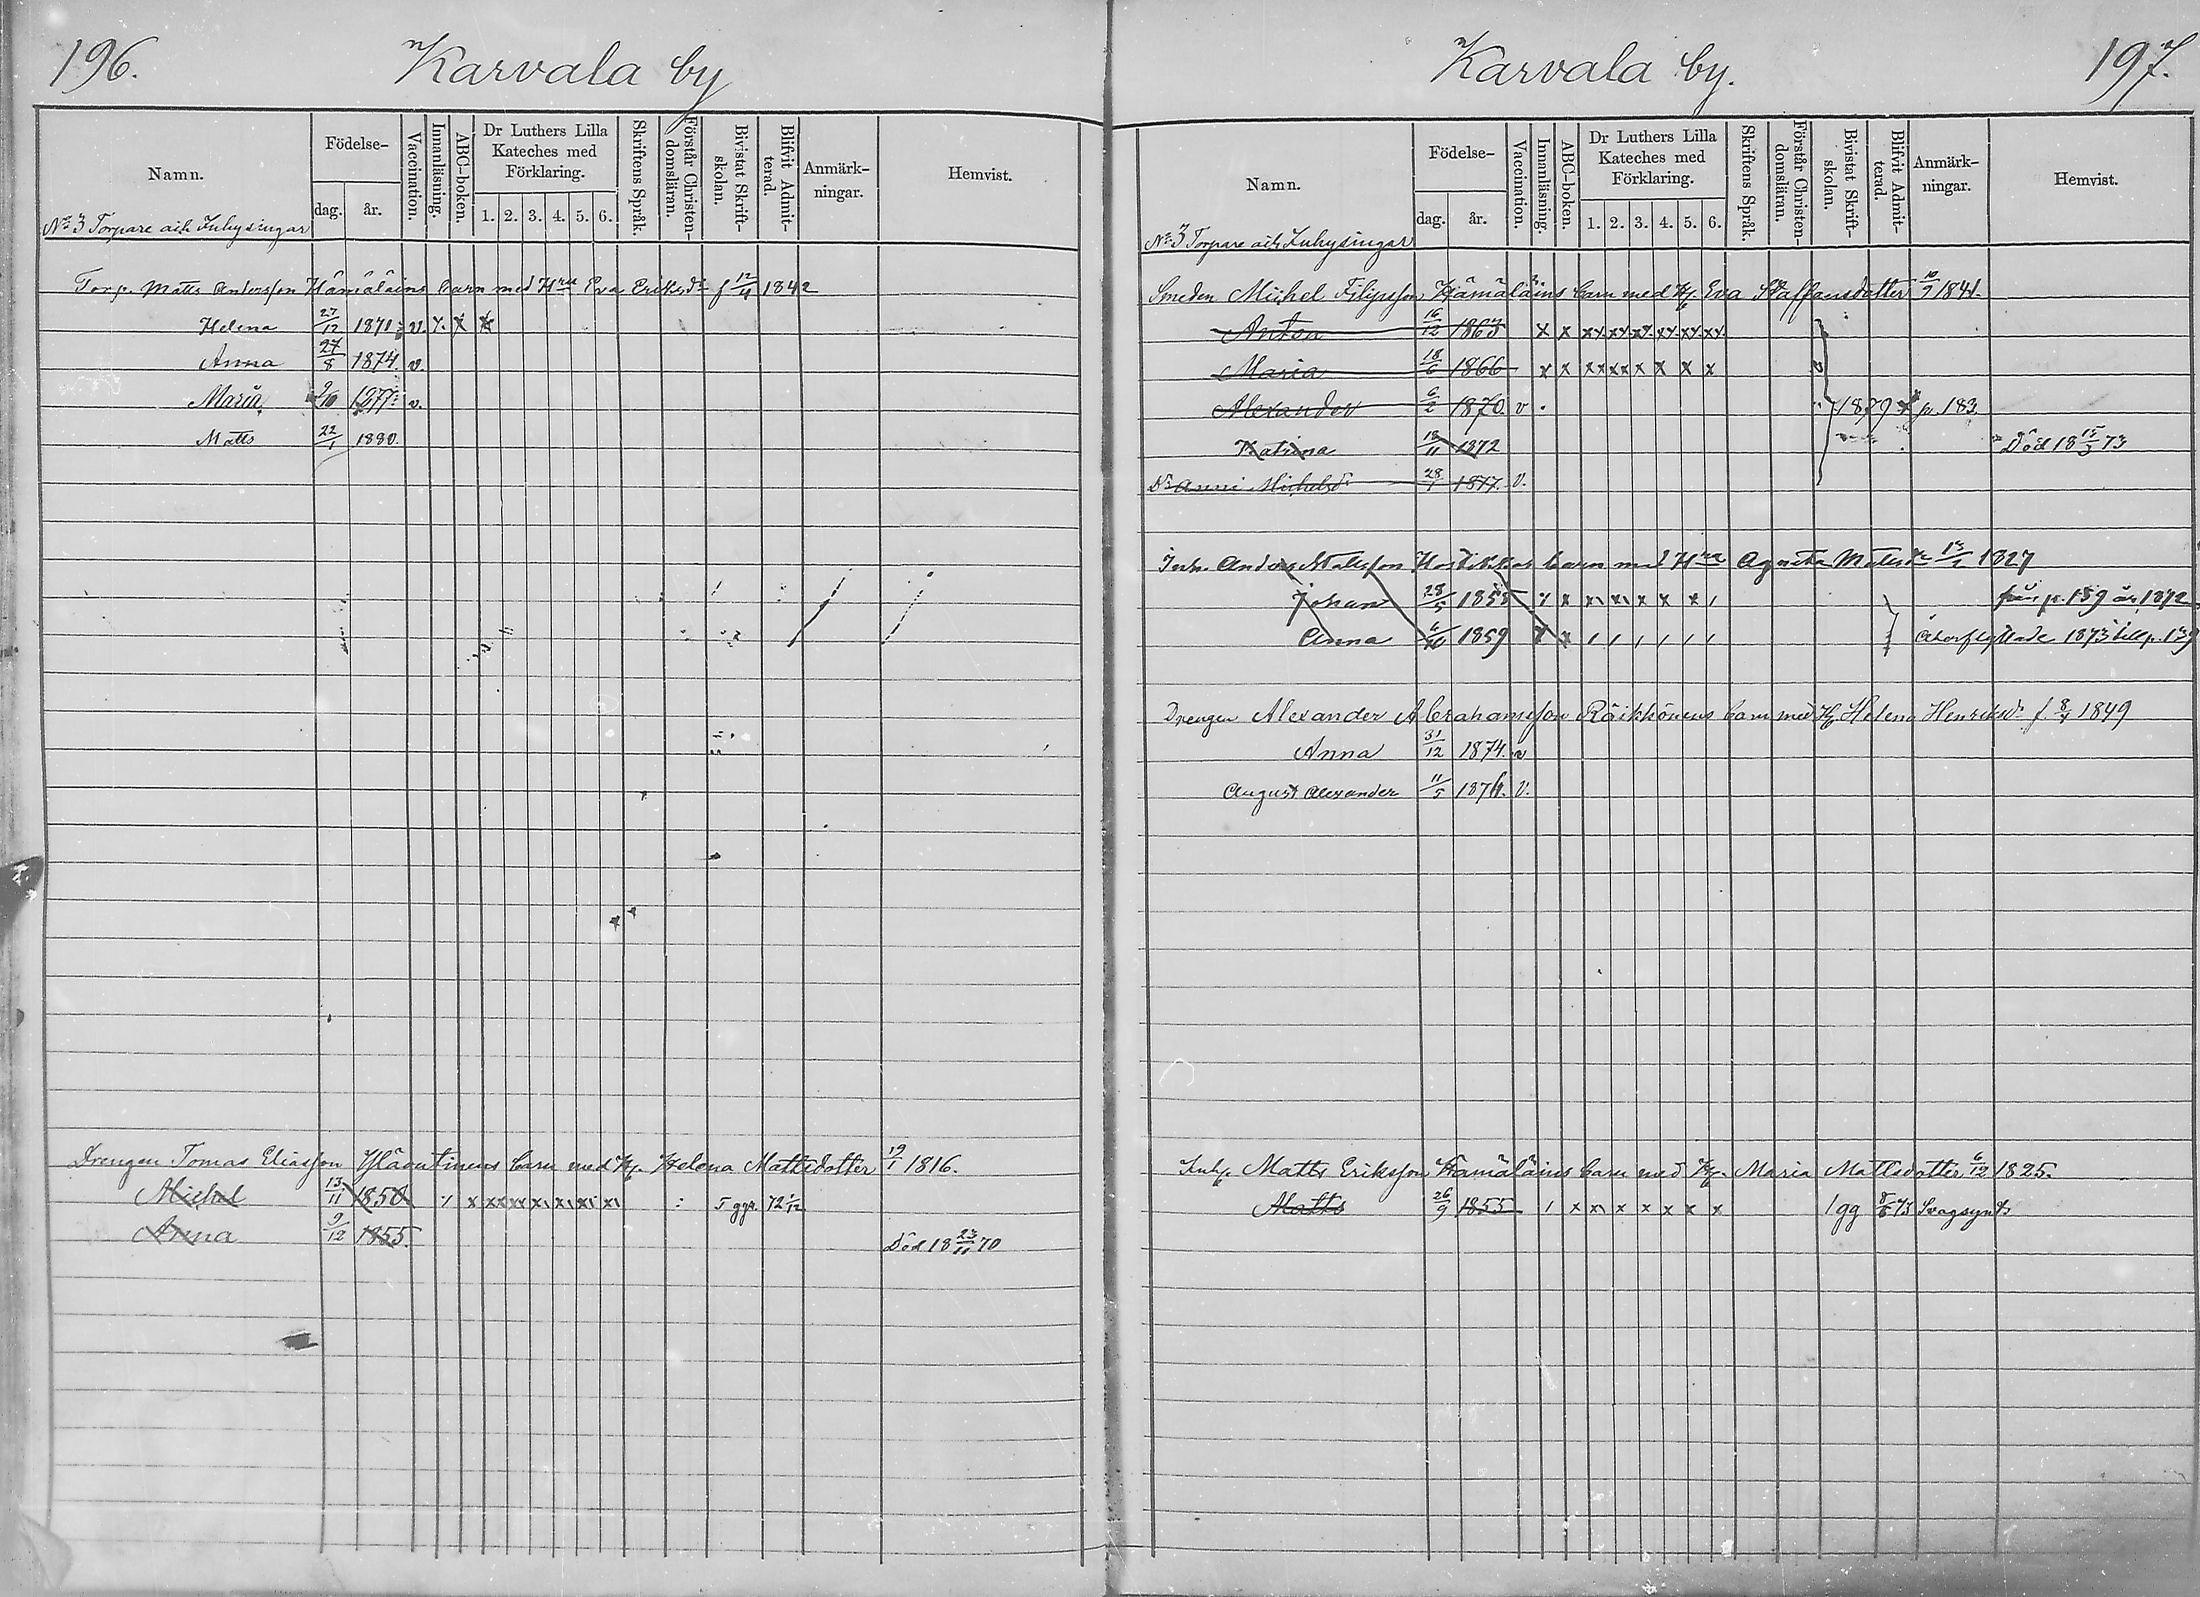 196.
Karvala by
Namn.
Födelse-
dag. år.
Vaccination.
Innanläsning.
ABC-boken.
Dr Luthers Lilla Kateches med Förklaring.
1. 2. 3. 4. 5. 6.
Skriftens Språk.
Förstår Christen-domsläran.
Bivistat Skrift-skolan.
Blifvit Admit-terad.
Anmärk-ningar.
Hemvist.
No 3 Torpare och Inhysingar
Torp. Matts Andersson Hämäläins barn med Hru Eva Eriksdr f 12/4 1842
Helena 27/12 1871 v. x x x
Anna 27/8 1874. v.
Maria 2/10 1877. v.
Matts 22/1 1880.
Drengen Tomas Eliasson Yläoutinens barn med Hu. Helena Mattsdotter 19/1 1816.
Michel 13/11 1850 / x xx xx x\ x\ x\ x\ 5 ggr. 72 1/12
Anna 9/12 1855. Död 18 23/11 70
Karvala by.
197.
Namn.
Födelse-
dag. år.
Vaccination.
Innanläsning.
ABC-boken.
Dr Luthers Lilla Kateches med Förklaring.
1. 2. 3. 4. 5. 6.
Skriftens Språk.
Förstår Christen-domsläran.
Bivistat Skrift-skolan.
Blifvit Admit-terad.
Anmärk-ningar.
Hemvist.
No 3 Torpare och Inhysingar
Smeden Michel Filipsson Hämäläins barn med Hu. Eva Staffansdotter 10/9 1841.
Anton 16/12 1863 x x xx xx xx xx xx xx
Maria 18/6 1866 x x xx xx x x x x
Alexander 6/2 1870 v 1879 p. 183.
Katrina 18/11 1872 Död 18 15/3 73
Dr Anni Michelsdr 28/1 1877. v.
Inh. Anders Mattsson barn med Hru Agneta Mattsdr 1827
Johan 28/5 1855 / x x\ x\ x x x / från p. 189 år 1872
Anna 1859 x x / / / / / / Återflyttade 1873 till p. 139
Drengen Alexander Abrahamsson Räikkönens barn med Hu. Helena Henriksdr f 8/4 1849
Anna 31/12 1874. v
August Alexander 11/5 1876. v.
Inh. Matts Eriksson Hämäläins barn med Hu. Maria Mattsdotter 6/12 1825.
Matts 26/9 1855 / x x\ x x x x x 1 gg 8/6 73 Svagsynt